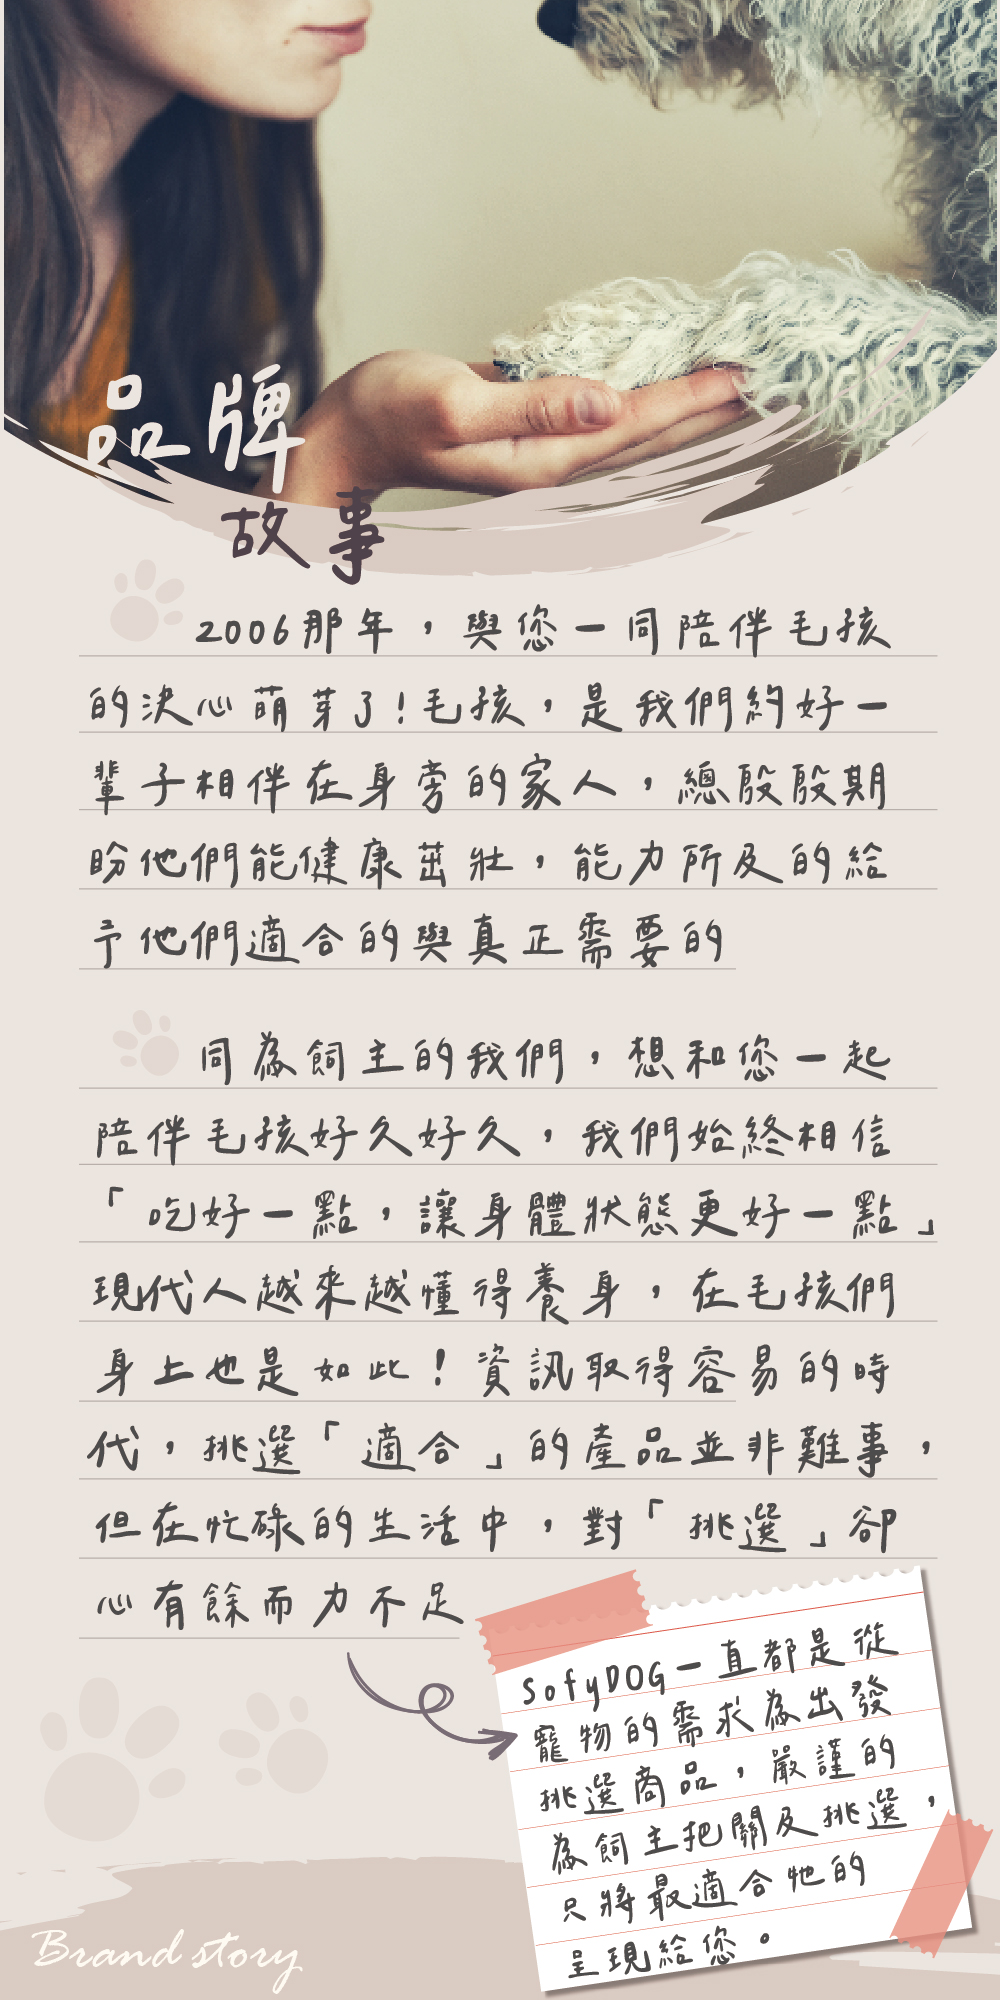 品牌
故事
2006那年，與您一同陪伴毛孩
的決心萌芽了!毛孩，是我們約好一
輩子相伴在身旁的家人，總殷殷期
盼他們能健康茁壯，能力所及的給
予他們適合的與真正需要的
同為飼主的我們，想和您一起
陪伴毛孩好久好久，我們始終相信
「吃好一點，讓身體狀態更好一點」
現代人越來越懂得養身，在毛孩們
身上也是如此!資訊取得容易的時
代，挑選「適合」的產品並非難事，
但在忙碌的生活中，對「挑選」卻
心有餘而力不足
SofyDOG一直都是從
寵物的需求為出發
挑選商品，嚴謹的
為飼主把關及挑選，
只將最適合牠的
呈現給您。
Brand story